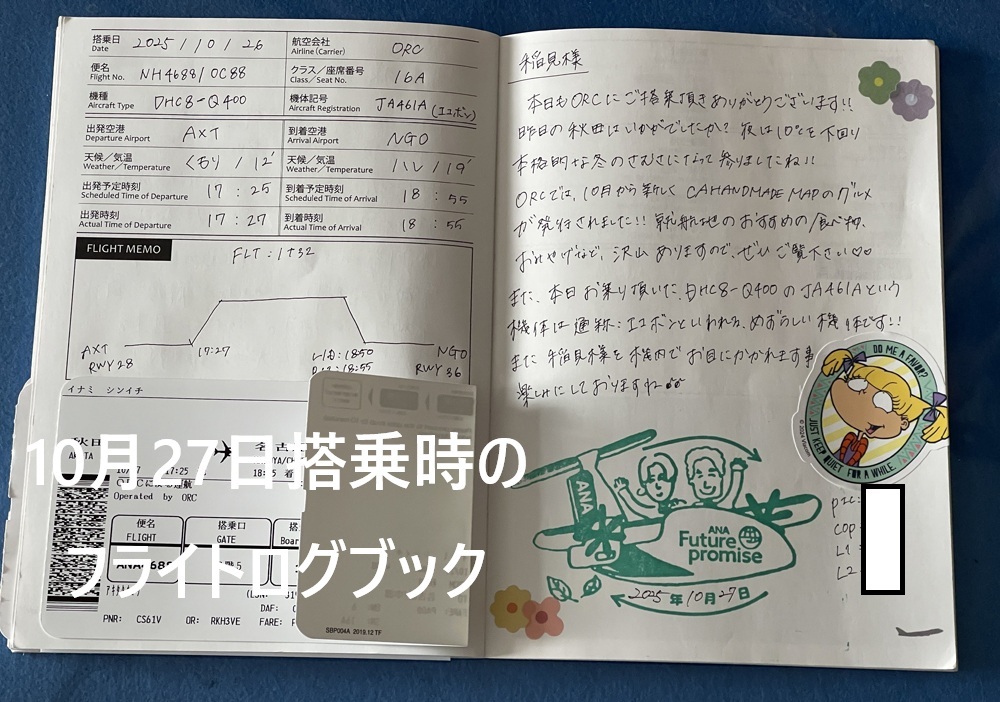 搭乗日 2025/10/26 航空会社 ORC
Date Airline (Carrier)
便名 NH4688/OC88 クラス/座席番号 16A
Flight No. Class/Seat No.
機種 DHC8-Q400 機体記号 JA461A(エコボン)
Aircraft Type Aircraft Registration
出発空港 AXT 到着空港 NGO
Departure Airport Arrival Airport
天候/気温 くもり / 12° 天候/気温 ハレ / 19°
Weather/Temperature Weather/Temperature
出発予定時刻 17:25 到着予定時刻 18:55
Scheduled Time of Departure Scheduled Time of Arrival
出発時刻 17:27 到着時刻 18:55
Actual Time of Departure Actual Time of Arrival
FLIGHT MEMO
FLT:1+32
AXT 17:27 L/D:1850 NGO
RWY28 18:55 RWY36
イナミ シンイチ
秋田 名古
AKITA
17:25
Operated by ORC
便名 搭乗口
FLIGHT GATE
PNR: CS61V OR: RKH3VE FARE:
DAF:
SBP004A 2019.12 TF
10月27日搭乗時の
フライトログブック
稲見様
本日もORCにご搭乗頂きありがとうございます!!
昨日の秋田はいかがでしたか? 夜は10℃を下回り
本格的な冬のさむさになって参りましたね!!
ORCでは、10月から新しく CAHANDMADE MAPのグルメ
が発行されました!! 就航地のおすすめの食べ物、
おみやげなど、沢山ありますので、ぜひご覧下さい♡♡
また、本日お乗り頂いた、DHC8-Q400のJA461Aという
機体は通称:エコボンといわれる、めずらしい機体です!!
また稲見様を機内でお目にかかれます事
楽しみにしておりますね
DO ME A FAVOR?
JUST KEEP QUIET FOR A WHILE
ANA
ANA
Future
promise
2025年10月27日
PIC:
COP
L1
L2